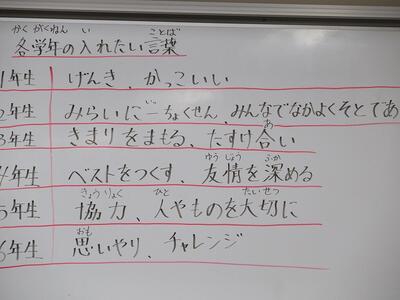 かく がくねん い ことば
各学年の入れたい言葉
1年生 げんき、かっこいい
2年生 みらいに一ちょくせん、みんなでなかよくそとであ
あ
3年生 きまりをまもる、たすけ合い
ゆうじょう ふか
4年生 ベストをつくす、友情を深める
きょうりょく ひと たいせつ
5年生 協力、人やものを大切に
おも
6年生 思いやり、チャレンジ